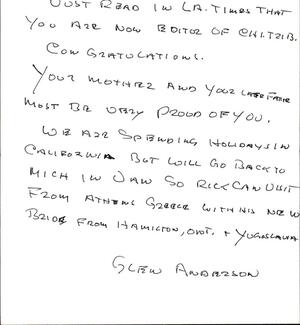 JUST READ IN LA. TIMES THAT
YOU ARE NOW EDITOR OF CHI. TRIB.
CONGRATULATIONS.
YOUR MOTHER AND YOUR LATE FATHER
MOST BE VERY PROUD OF YOU.
WE ARE SPENDING HOLIDAYS IN
CALIFORNIA BUT WILL GO BACK TO
MICH IN JAN SO RICK CAN VISIT
FROM ATHENS GREECE WITH HIS NEW
BRIDE FROM HAMILTON, ONT. + YUGOSLAVIA
GLEN ANDERSON